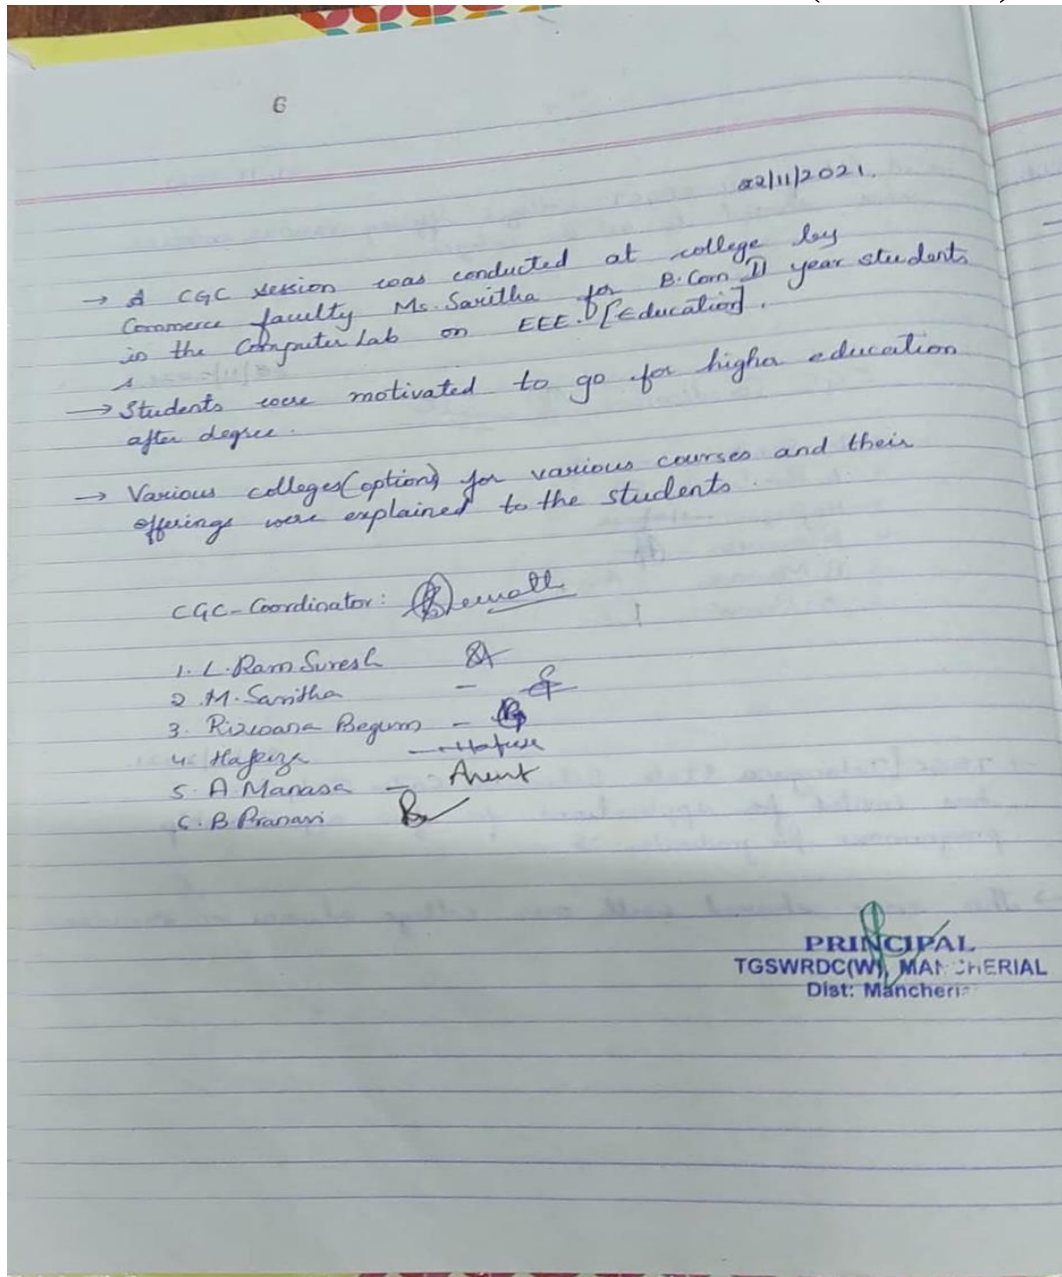 6
22/11/2021.
→ A CGC session was conducted at college by
Commerce faculty Ms. Saritha for B.Com II year students
in the Computer Lab on EEE. [Education].
→ Students were motivated to go for higher education
after degree.
→ Various colleges(option) for various courses and their
offerings were explained to the students.
CGC-Coordinator:
1. L. Ram Suresh
2. M. Saritha -
3. Rizwana Begum -
4. Hafeiza -
5. A Manasa -
6. B Pranavi
PRINCIPAL
TGSWRDC(W), MANCHERIAL
Dist: Mancherial